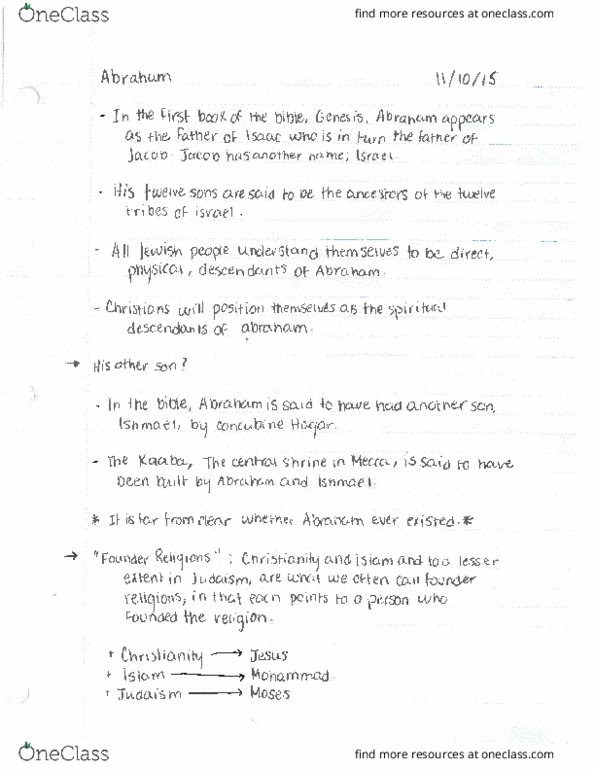 OneClass
find more resources at oneclass.com
Abraham 11/10/15
- In the first book of the bible, Genesis, Abraham appears
as the father of Isaac who is in turn the father of
Jacob. Jacob has another name; Israel.
- His twelve sons are said to be the ancestors of the twelve
tribes of israel.
- All Jewish people understand themselves to be direct,
physical, descendants of Abraham.
- Christians will position themselves as the spiritual
descendants of abraham.
→ His other son?
- In the bible, Abraham is said to have had another son,
Ishmael, by concubine Hagar.
- The Kaaba, The central shrine in Mecca, is said to have
been built by Abraham and Ishmael.
* It is far from clear whether Abraham ever existed. *
→ "Founder Religions": Christianity and islam and to a lesser
extent in Judaism, are what we often call founder
religions, in that each points to a person who
founded the religion.
+ Christianity → Jesus
+ Islam → Mohammad
+ Judaism → Moses
OneClass
find more resources at oneclass.com